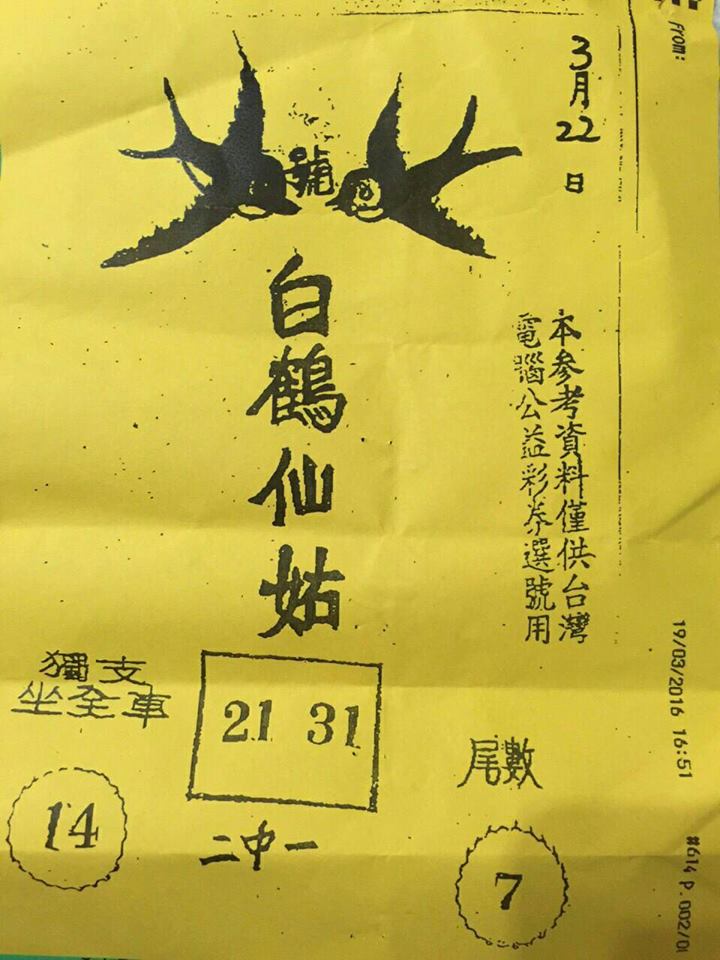 From:
3月22日
號
白鶴仙姑
本参考資料僅供台灣
電腦公益彩券選號用
獨支
坐全車
14
21 31
二中一
尾數
7
19/03/2016 16:51
#614 P. 002/0